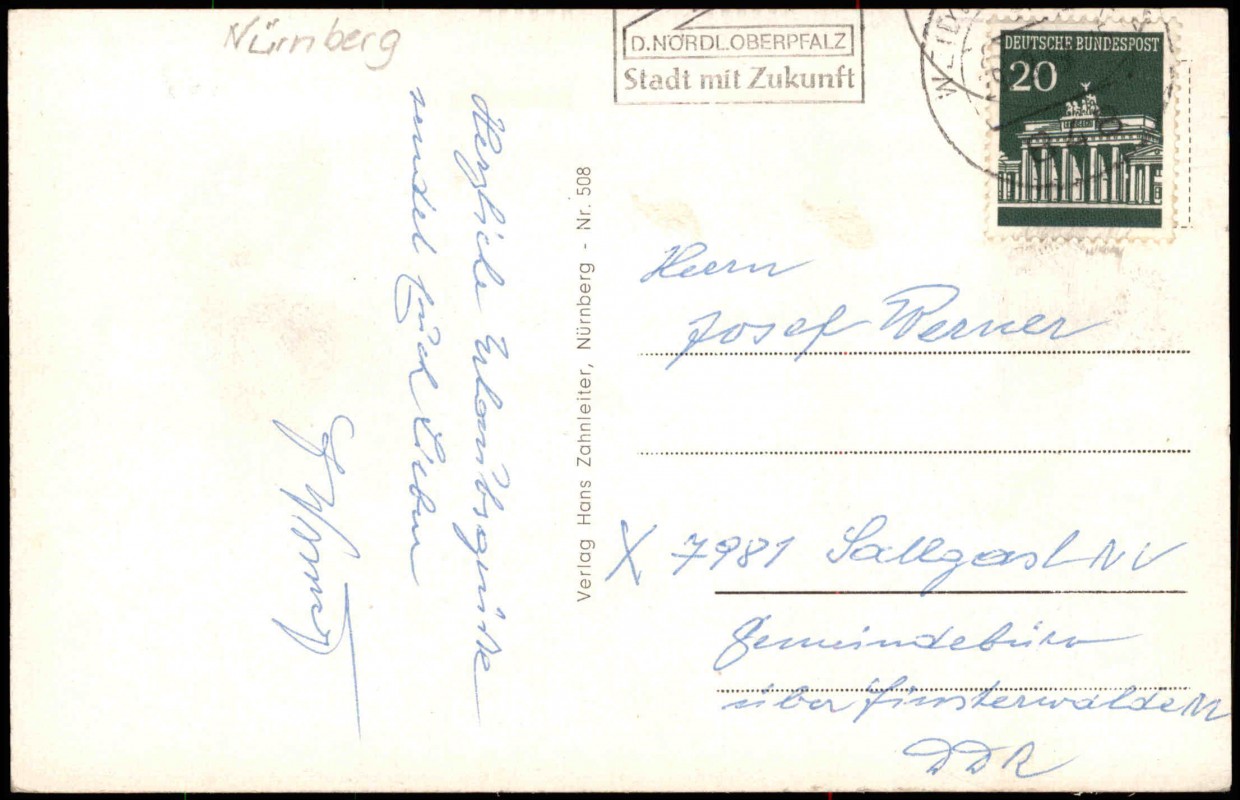 Nürnberg
D. NÖRDL. OBERPFALZ
Stadt mit Zukunft
DEUTSCHE BUNDESPOST
20
Herzliche Urlaubsgrüße
sendet Euch Lieben
Verlag Hans Zahnleiter, Nürnberg - Nr. 508
Herrn
Josef Werner
X 7981 Sallgast NL
Gemeindebüro
über Finsterwalde NL
DDR